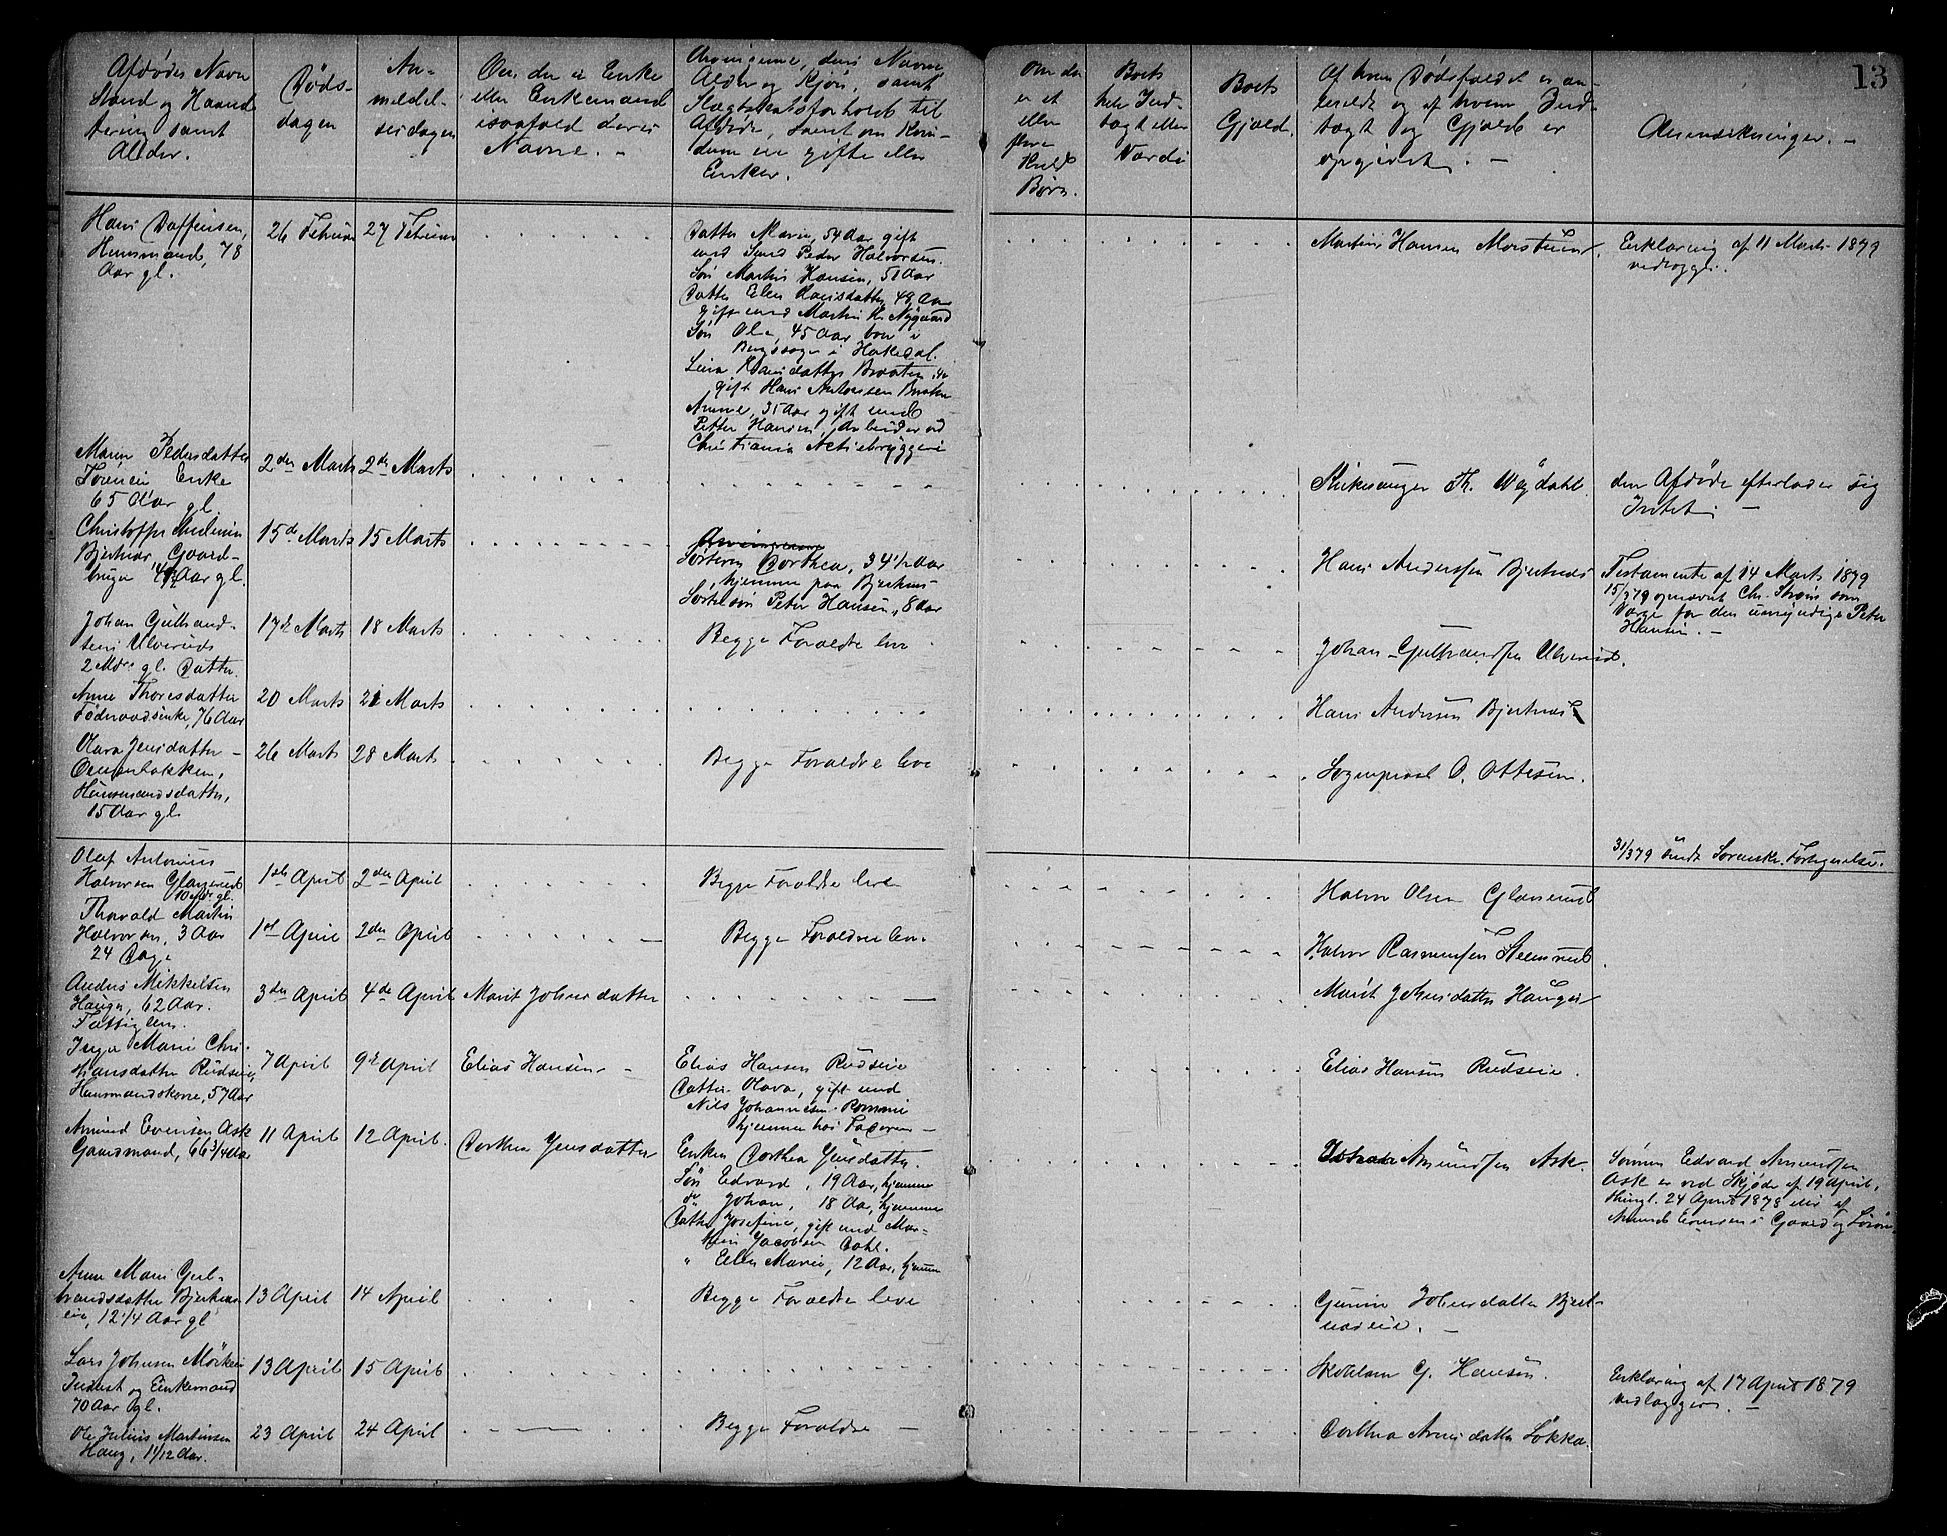 13
Afdødes Navn
Stand og Haand
tering samt
Alder.
Døds-
dagen
An-
meldel-
sesdagen
Om der er Enke
eller Enkemand
isaafald deres
Navne. -
Arvingerne, deres Navne
Alder og Kjøn, samt
Slægtskabsforhold til
Afdøde, samt om Kvin-
dern ere gifte eller
Enker.
Om der
er et
eller
flere
Kuld
Børn.
Boets
hele Ind-
tægt eller
Værdi
Boets
Gjæld.
Af hvem Dødsfaldet er an-
meldt og af hvem Ind-
tægt og Gjæld er
opgivet. -
Anmærkninger. -
Hans
Huusmand, 78
Aar gl.
26 Februar
27 Februar
Datter Maren, 54 Aar gift
med Smed Peder Halvorsen.
Søn Martin Hansen, 50 Aar
Datter Elen Hansdatter 49 Aar
gift med Martin H. Nygaard
Søn Ole, 45 Aar boer i
i Hakedal.
Hansdatter Braaten
gift Hans Antonsen
Anne, 35 Aar gift med
Petter Hansen, Arbeider ved
Christiania Actiebryggeri
Martin Hansen
Erklæring af 11 Marts 1879
vedlægges.
Maren Pedersdatter
Enke
65 Aar gl.
2den Marts
2den Marts
Kirkesanger Th. Wøjdahl.
den Afdøde efterlader sig
Intet. -
Christoffer
Bjertnæs, Gaard-
bruger 49 Aar gl.
15de Marts
15 Marts
Arvingerne
Søsteren Dorthea, 34 1/2 Aar
hjemme paa Bjertnæs
Søstersøn Peter Hansen, 8 Aar
Hans Anderssen Bjertnæs
Testamente af 14 Marts 1879
15/3 79 opnævnt Chr. Strøm som
Værge for den umyndige Peter
Hansen. -
Johan Gulbrand-
sens Ulveruds
2 Mdr gl. Datter.
17de Marts
18 Marts
Begge Forældre leve
Johan Gulbrandsen Ulverud.
Anne Thoresdatter
Føderaadsenke, 76 Aar
20 Marts
21 Marts
Hans Andersen Bjertnæs
Olava Jensdatter
Huusmandsdatter,
15 Aar gl.
26 Marts
28 Marts
Begge Forældre leve
Sogneprest O. Ottesen.
31/3 79 sendt Sorensk. Fortegnelse.
Olaf Antonius
Halvorsen Glaserud
10 gl.
1ste April
2den April
Begge Forældre leve
Halvor Olsen Glaserud
Thorvald Martin
Halvorsen, 3 Aar
24 Dage
1st April
2den April
Begge Forældre leve.
Halvor Rasmussen Steensrud
Anders Mikkelsen
Hauger, 62 Aar.
Fattiglem.
3den April
4de April
Marit Johnsdatter
Marit Johnsdatter Hauger
Inger Marie Chri-
stiansdatter Rudseie,
Huusmandskone, 57 Aar
7 April
9de April
Elias Hansen
Elias Hansen Rudseie
Datter Olava, gift med
Nils Johannesen
hjemme hos Faderen -
Elias Hansen Rudseie.
Amund Evensen Ask
Gaardmand, 66 3/4 Aar
11 April
12 April.
Dorthea Jensdatter
Enken Dorthea Jensdatter.
Søn Edvard, 19 Aar, hjemme
do Johan, 18 Aar, hjemme
Datter Josefine, gift med Mar-
tin Jacobsen Dahl.
" Ellen Marie, 12 Aar, hjemme
Johan Amundsen Ask.
Sønnen Edvard Amundsen
Ask er ved Skjøde af 19 April,
thingl. 24 April 1878 eier af
Amund Evensens Gaard og Løsøre
Anne Marie Gul-
brandsdatter Bjertnæs-
eie, 12 1/4 Aar gl
13 April
14 April
Begge Forældre leve
Gunine Johnsdatter Bjert-
næseie. -
Lars Johnsen
Inderst og Enkemand
70 Aar gl.
13 April
15 April
Skolelærer G. Hansen.
Erklæring af 17 April 1879
vedlægges. -
Ole Julius Martinsen
Haug, 11/12 Aar.
23 April
24 April
Begge Forældre -
Dorthea Arnesdatter Løkka.